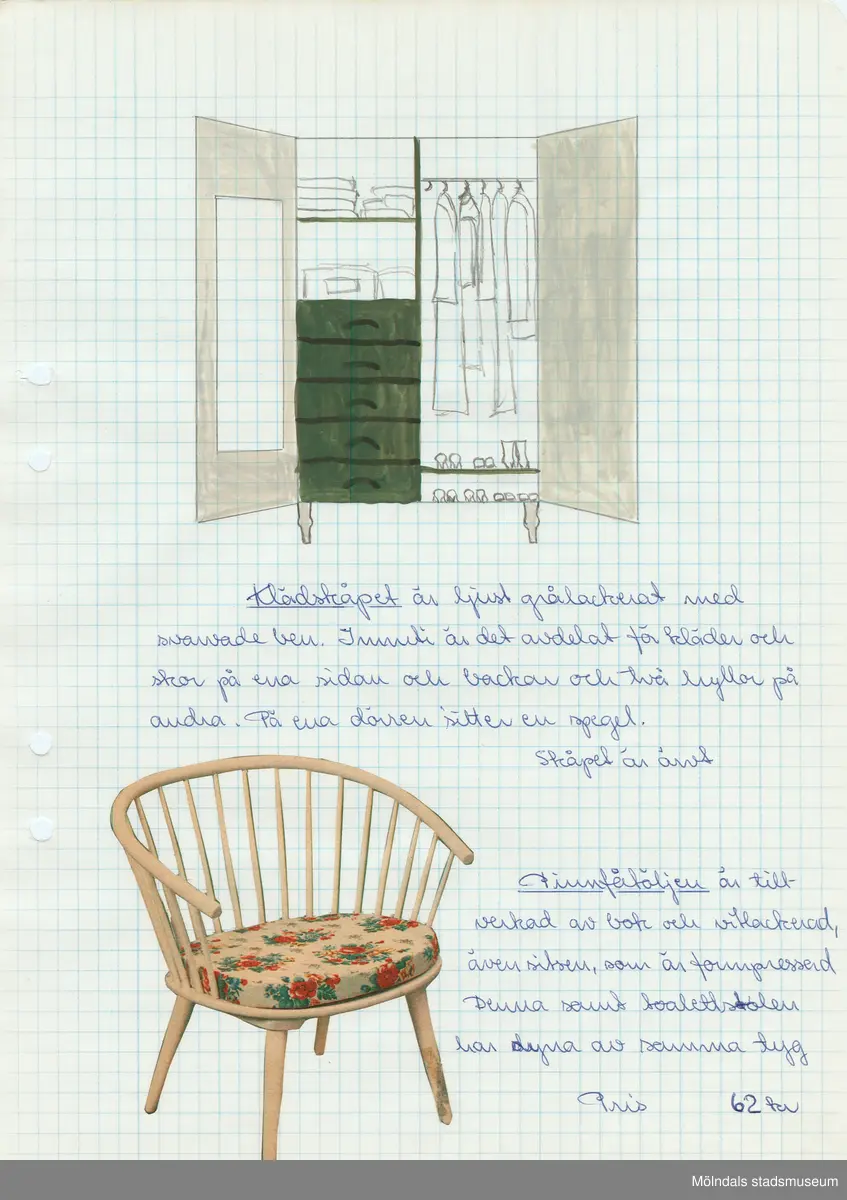 Klädskåpet är ljust grålackerat med
svarvade ben. Inuti är det avdelat för kläder och
skor på ena sidan och backar och två hyllor på
andra. På ena dörren sitter en spegel.
Skåpet är ärvt
Pinnfåtöljen är till-
verkad av bok och vitlackerad,
även sitsen, som är formpressad
Denna samt toalettstolen
har dyna av samma tyg
Pris 62 kr
Mölndals stadsmuseum